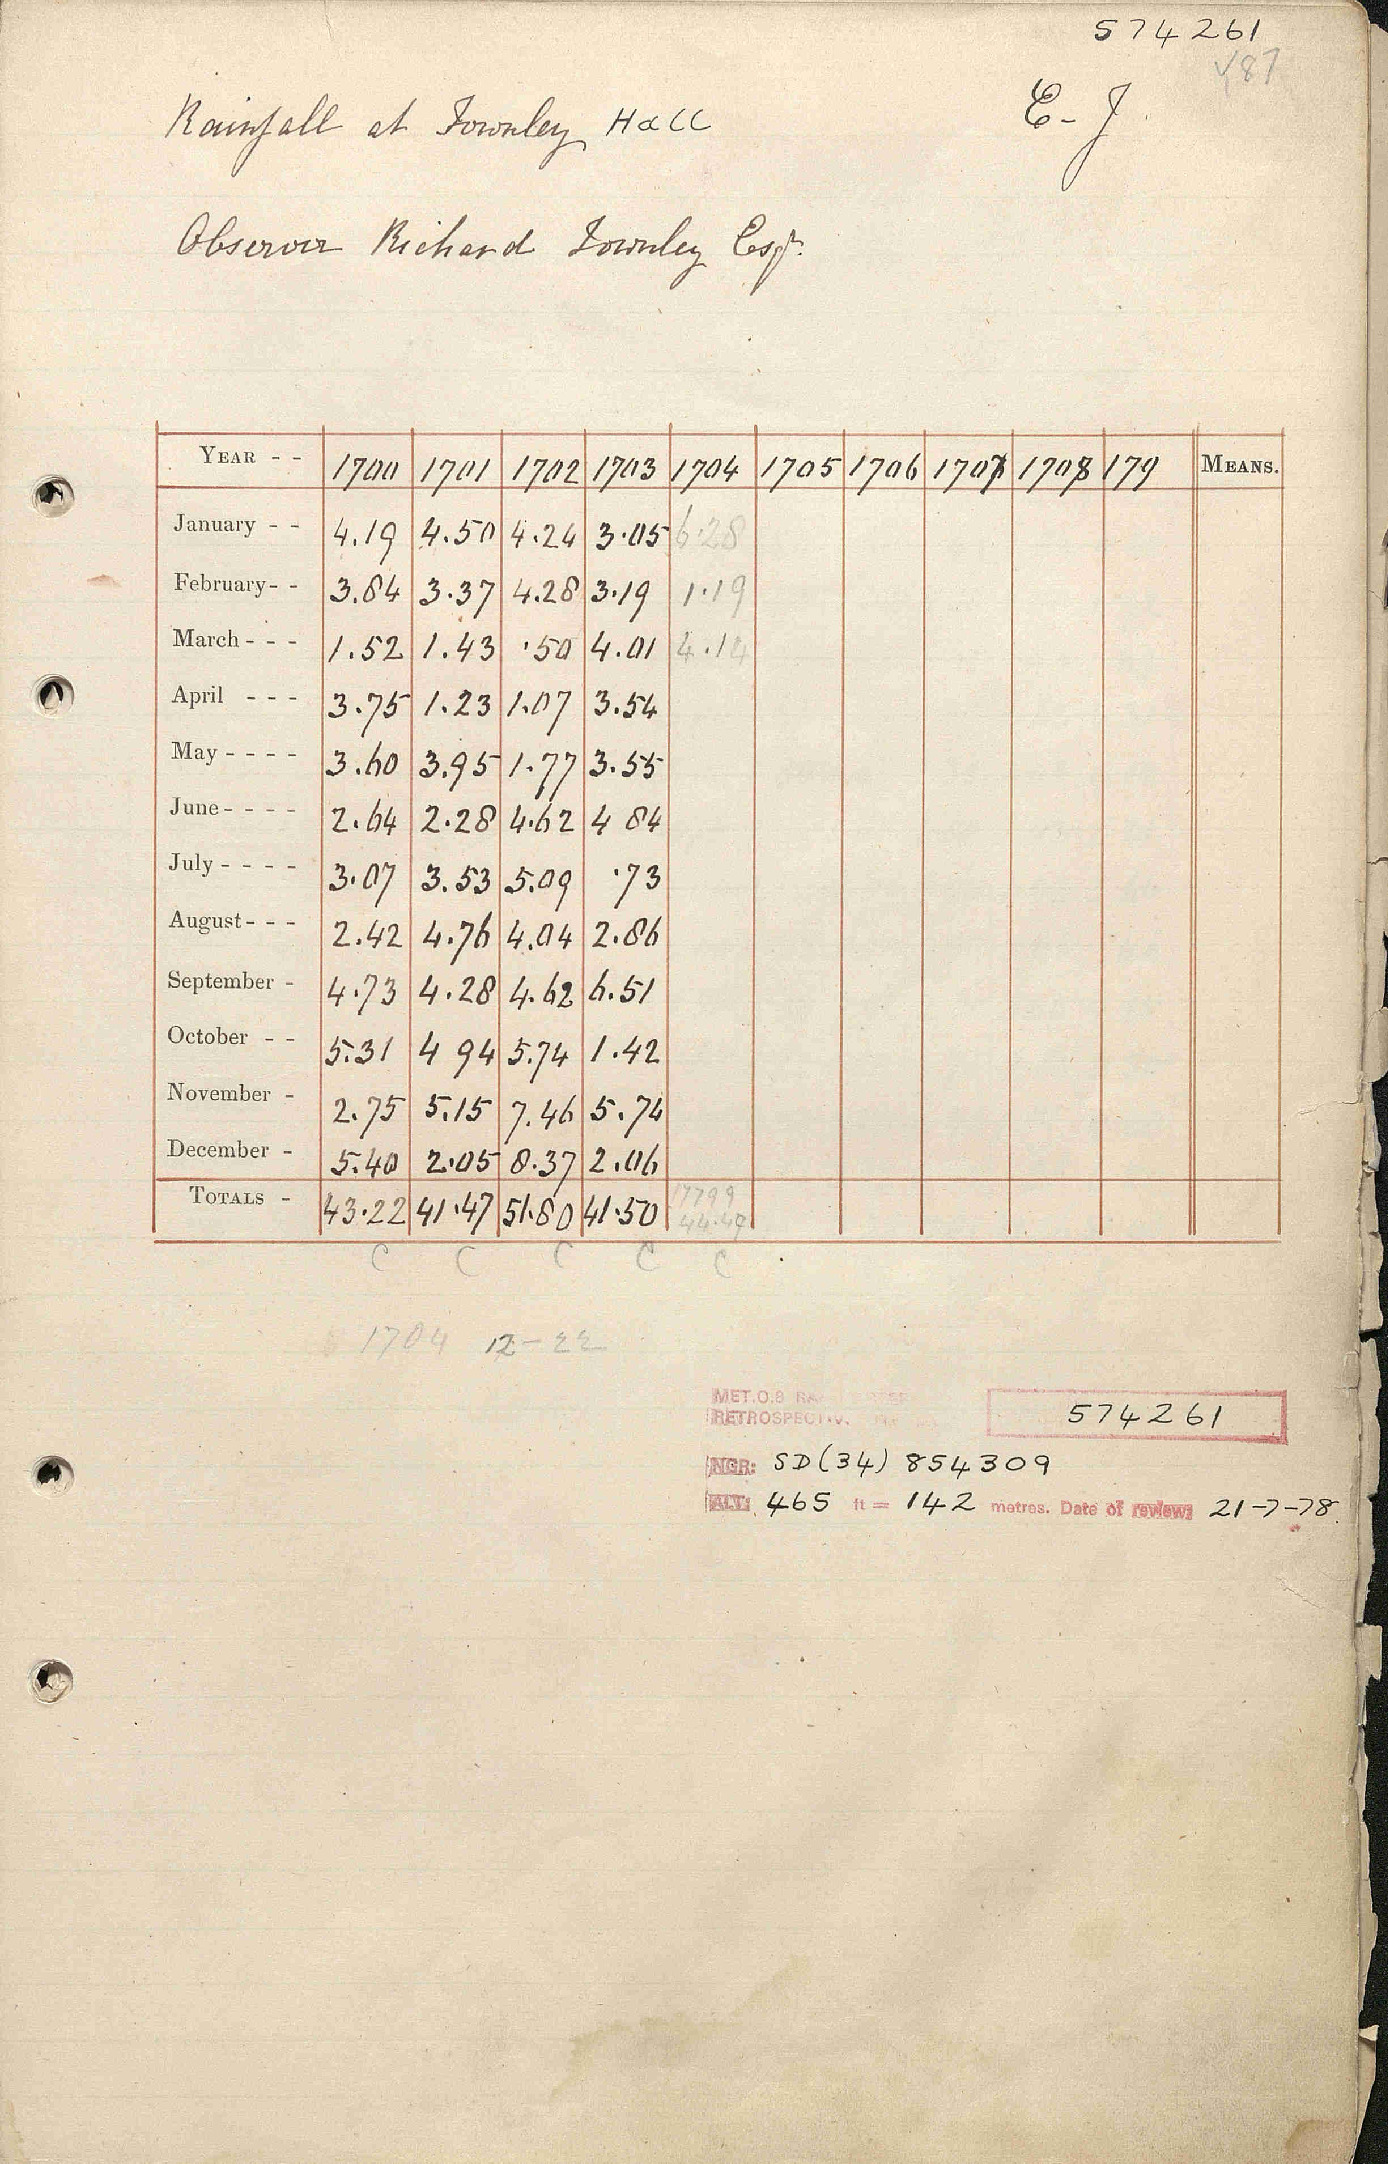 574261
√87
Rainfall at Townley Hall
E-J
Observer Richard Townley Esqr.
YEAR - - 1700 1701 1702 1703 1704 1705 1706 1707 1708 179 MEANS.
January - - 4.19 4.50 4.24 3.05 6.28
February - - 3.84 3.37 4.28 3.19 1.19
March - - - 1.52 1.43 .50 4.01 4.14
April - - - 3.75 1.23 1.07 3.54
May - - - - 3.60 3.95 1.77 3.55
June - - - - 2.64 2.28 4.62 4 84
July - - - - 3.07 3.53 5.09 .73
August - - - 2.42 4.76 4.04 2.86
September - 4.73 4.28 4.62 6.51
October - - 5.31 4 94 5.74 1.42
November - 2.75 5.15 7.46 5.74
December - 5.40 2.05 8.37 2.06
TOTALS - 43.22 41.47 51.80 41.50
C C C C C
1704 12-22
MET.O.8
RETROSPECTIVE 574261
NGR: SD(34) 854309
ALT: 465 ft = 142 metres. Date of review: 21-7-78.